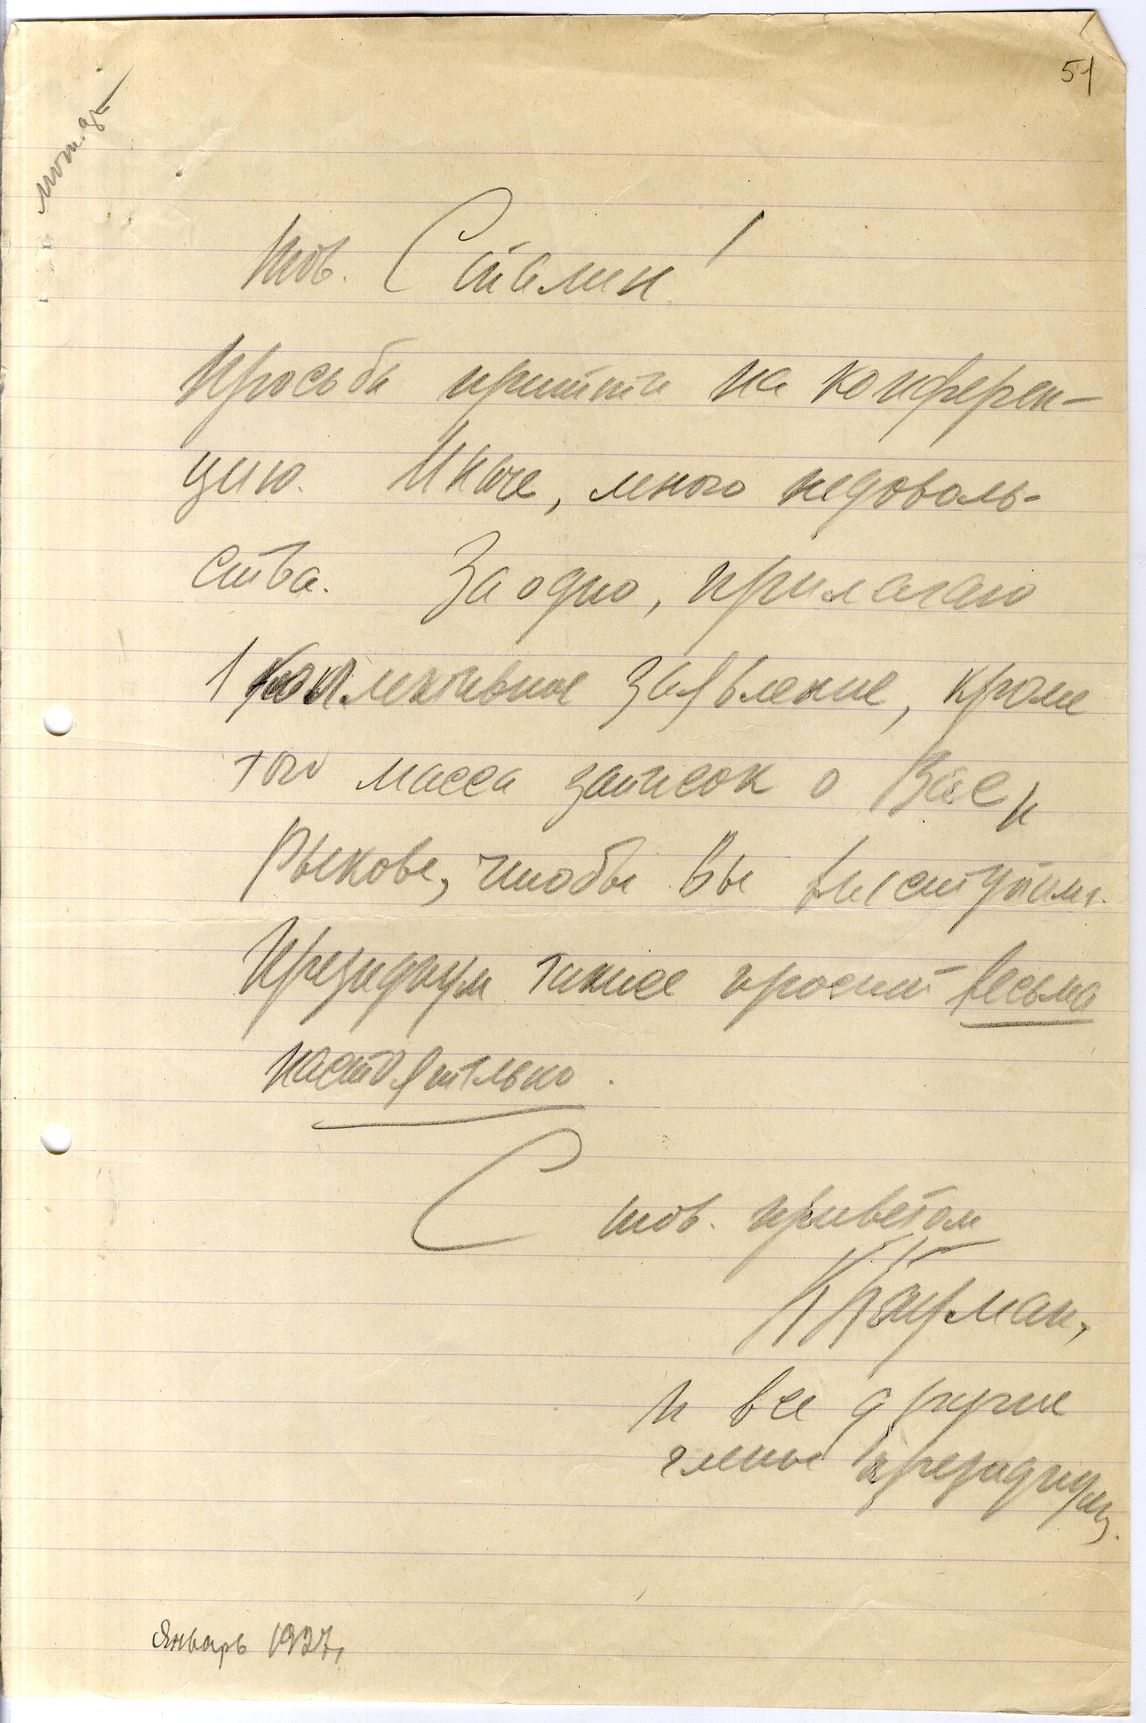 51
Тов. Сталин!
Просьба притти на конферен-
цию. Иначе, много недоволь-
ства. Заодно, прилагаю
1 коллективное заявление, кроме
того масса записок о Вас и
Рыкове, чтобы Вы выступили.
Президиум также просит весьма
настоятельно.
С тов. приветом
К Бауман,
и все другие
члены президиума.
Январь 1927,